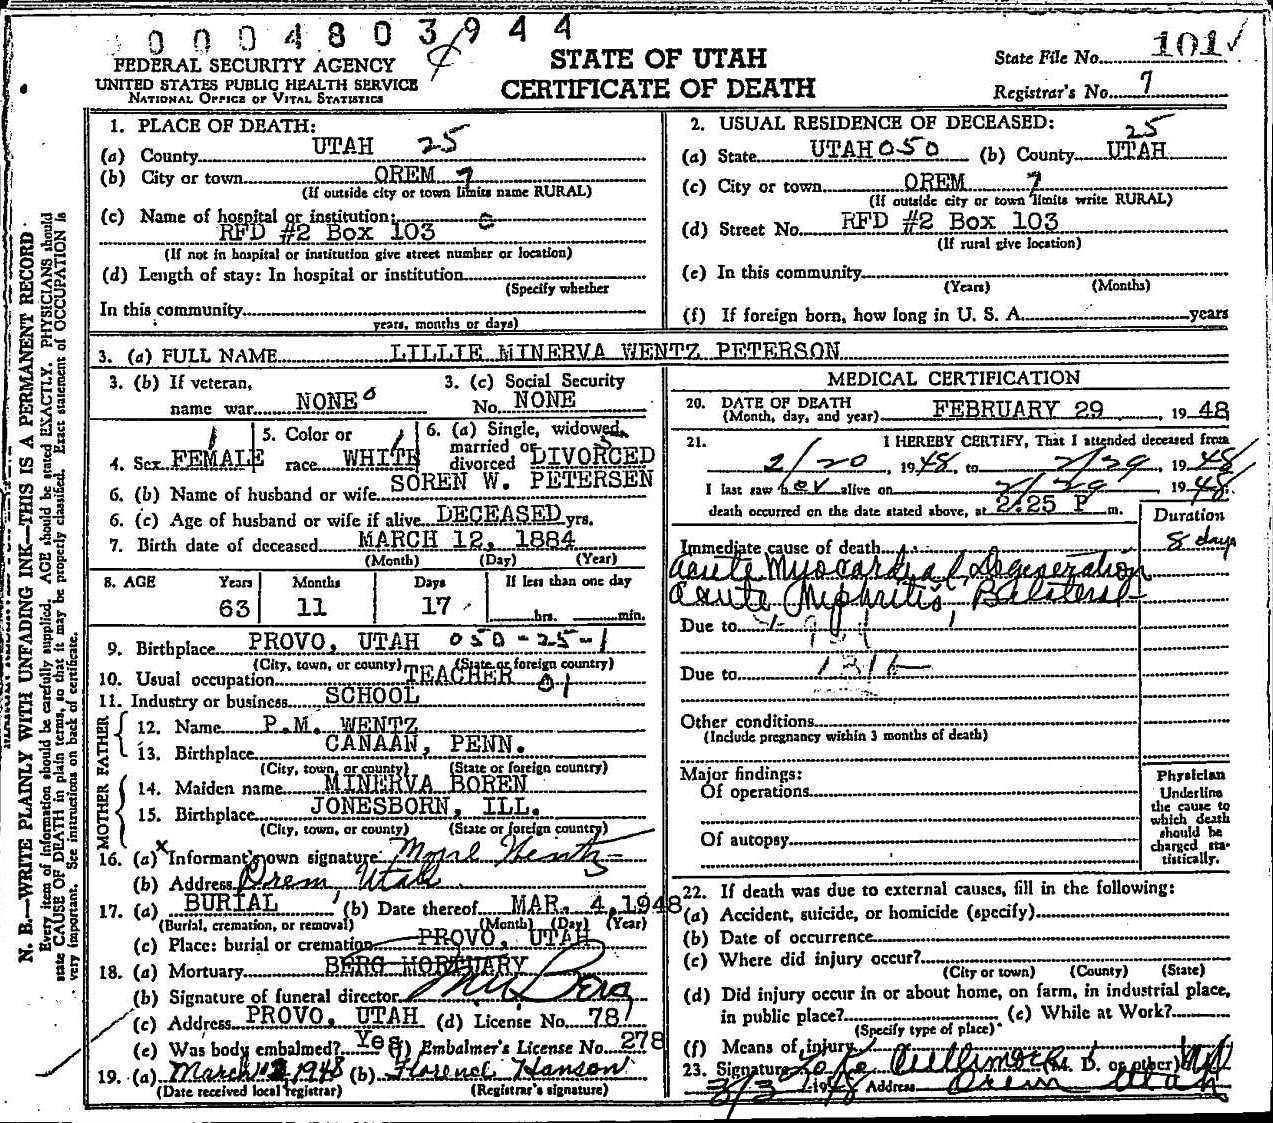 0004803944
FEDERAL SECURITY AGENCY
UNITED STATES PUBLIC HEALTH SERVICE
NATIONAL OFFICE OF VITAL STATISTICS
STATE OF UTAH
CERTIFICATE OF DEATH
State File No. 101
Registrar's No. 7
N. B.—WRITE PLAINLY WITH UNFADING INK—THIS IS A PERMANENT RECORD
Every item of information should be carefully supplied. AGE should be stated EXACTLY. PHYSICIANS should
state CAUSE OF DEATH in plain terms, so that it may be properly classified. Exact statement of OCCUPATION is
very important. See instructions on back of certificate.
1. PLACE OF DEATH:
(a) County UTAH 25
(b) City or town OREM 7
(If outside city or town limits name RURAL)
(c) Name of hospital or institution:
RFD #2 Box 103
(If not in hospital or institution give street number or location)
(d) Length of stay: In hospital or institution
(Specify whether
In this community
years, months or days)
2. USUAL RESIDENCE OF DECEASED:
25
(a) State UTAH 050 (b) County UTAH
(c) City or town OREM 7
(If outside city or town limits write RURAL)
(d) Street No. RFD #2 Box 103
(If rural give location)
(e) In this community
(Years) (Months)
(f) If foreign born, how long in U. S. A. years
3. (a) FULL NAME LILLIE MINERVA WENTZ PETERSON
3. (b) If veteran,
name war NONE 0
3. (c) Social Security
No. NONE
4. Sex FEMALE 1
5. Color or
race WHITE 1
6. (a) Single, widowed,
married or
divorced DIVORCED
6. (b) Name of husband or wife SOREN W. PETERSEN
6. (c) Age of husband or wife if alive DECEASED yrs.
7. Birth date of deceased MARCH 12, 1884
(Month) (Day) (Year)
8. AGE Years Months Days If less than one day
63 11 17 hrs. min.
9. Birthplace PROVO, UTAH 050-25-1
(City, town, or county) (State or foreign country)
10. Usual occupation TEACHER 01
11. Industry or business SCHOOL
FATHER
12. Name P.M. WENTZ
13. Birthplace CANAAN, PENN.
(City, town, or county) (State or foreign country)
MOTHER
14. Maiden name MINERVA BOREN
15. Birthplace JONESBORN, ILL.
(City, town, or county) (State or foreign country)
16. (a) X Informant's own signature Wentz
(b) Address Orem, Utah
17. (a) BURIAL (b) Date thereof MAR. 4, 1948
(Burial, cremation, or removal) (Month) (Day) (Year)
(c) Place: burial or cremation PROVO, UTAH
18. (a) Mortuary BERG MORTUARY
(b) Signature of funeral director Berg
(c) Address PROVO, UTAH (d) License No. 787
(e) Was body embalmed? Yes (f) Embalmer's License No. 278
19. (a) March 1948 (b) Florence Hanson
(Date received local registrar) (Registrar's signature)
MEDICAL CERTIFICATION
20. DATE OF DEATH
(Month, day, and year) FEBRUARY 29, 1948
21. I HEREBY CERTIFY, That I attended deceased from
2/20, 1948, to 2/29, 1948
I last saw her alive on 2/29 1948,
death occurred on the date stated above, at 2:25 P m.
Duration
Immediate cause of death 8 days
Acute Myocardial Degeneration
Acute Nephritis Bilateral
Due to
Due to
Other conditions
(Include pregnancy within 3 months of death)
Major findings:
Of operations
Of autopsy
Physician
Underline
the cause to
which death
should be
charged sta-
tistically.
22. If death was due to external causes, fill in the following:
(a) Accident, suicide, or homicide (specify)
(b) Date of occurrence
(c) Where did injury occur?
(City or town) (County) (State)
(d) Did injury occur in or about home, on farm, in industrial place,
in public place? (e) While at Work?
(Specify type of place)
(f) Means of injury
23. Signature (M. D. or other) MD
3/3 1948 Address Orem Utah